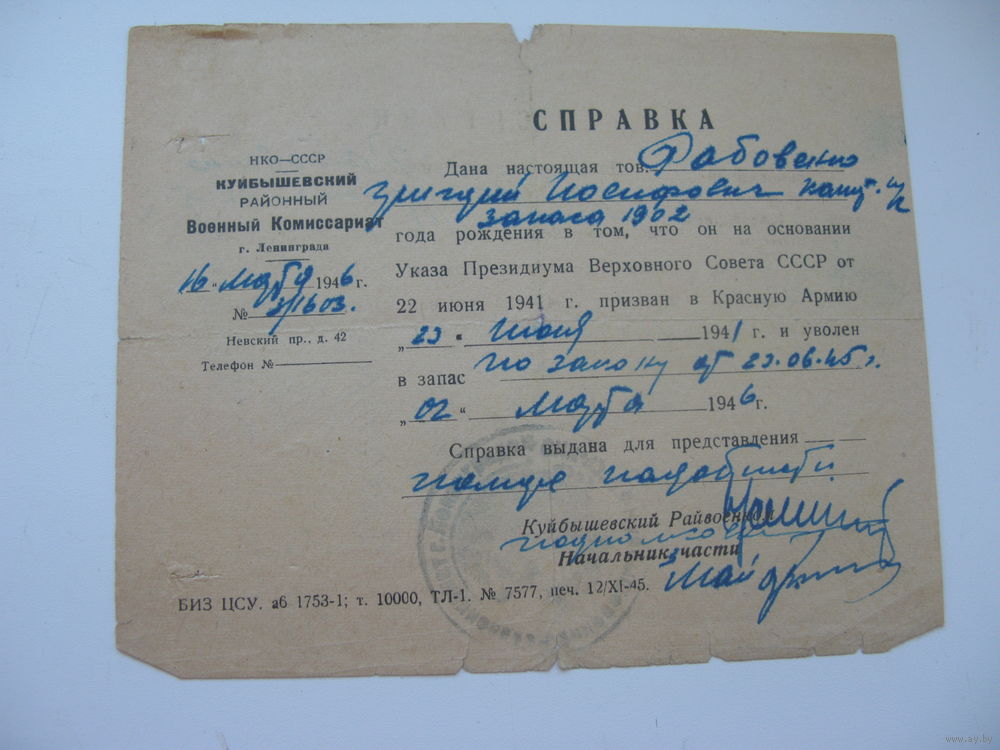 СПРАВКА
НКО—СССР
КУЙБЫШЕВСКИЙ
РАЙОННЫЙ
Военный Комиссариат
г. Ленинграда
16 " марта 1946 г.
№ 3/1603.
Невский пр., д. 42
Телефон №
Дана настоящая тов.
Григорий Иосифович
запаса 1902
года рождения в том, что он на основании
Указа Президиума Верховного Совета СССР от
22 июня 1941 г. призван в Красную Армию
„ 23 " 1941 г. и уволен
в запас по закону от 23.06.45 г.
„ 02 " марта 1946 г.
Справка выдана для представления
Куйбышевский Райвоенком
Начальник части
БИЗ ЦСУ. аб 1753-1; т. 10000, ТЛ-1. № 7577, печ. 12/XI-45.
www.ay.by